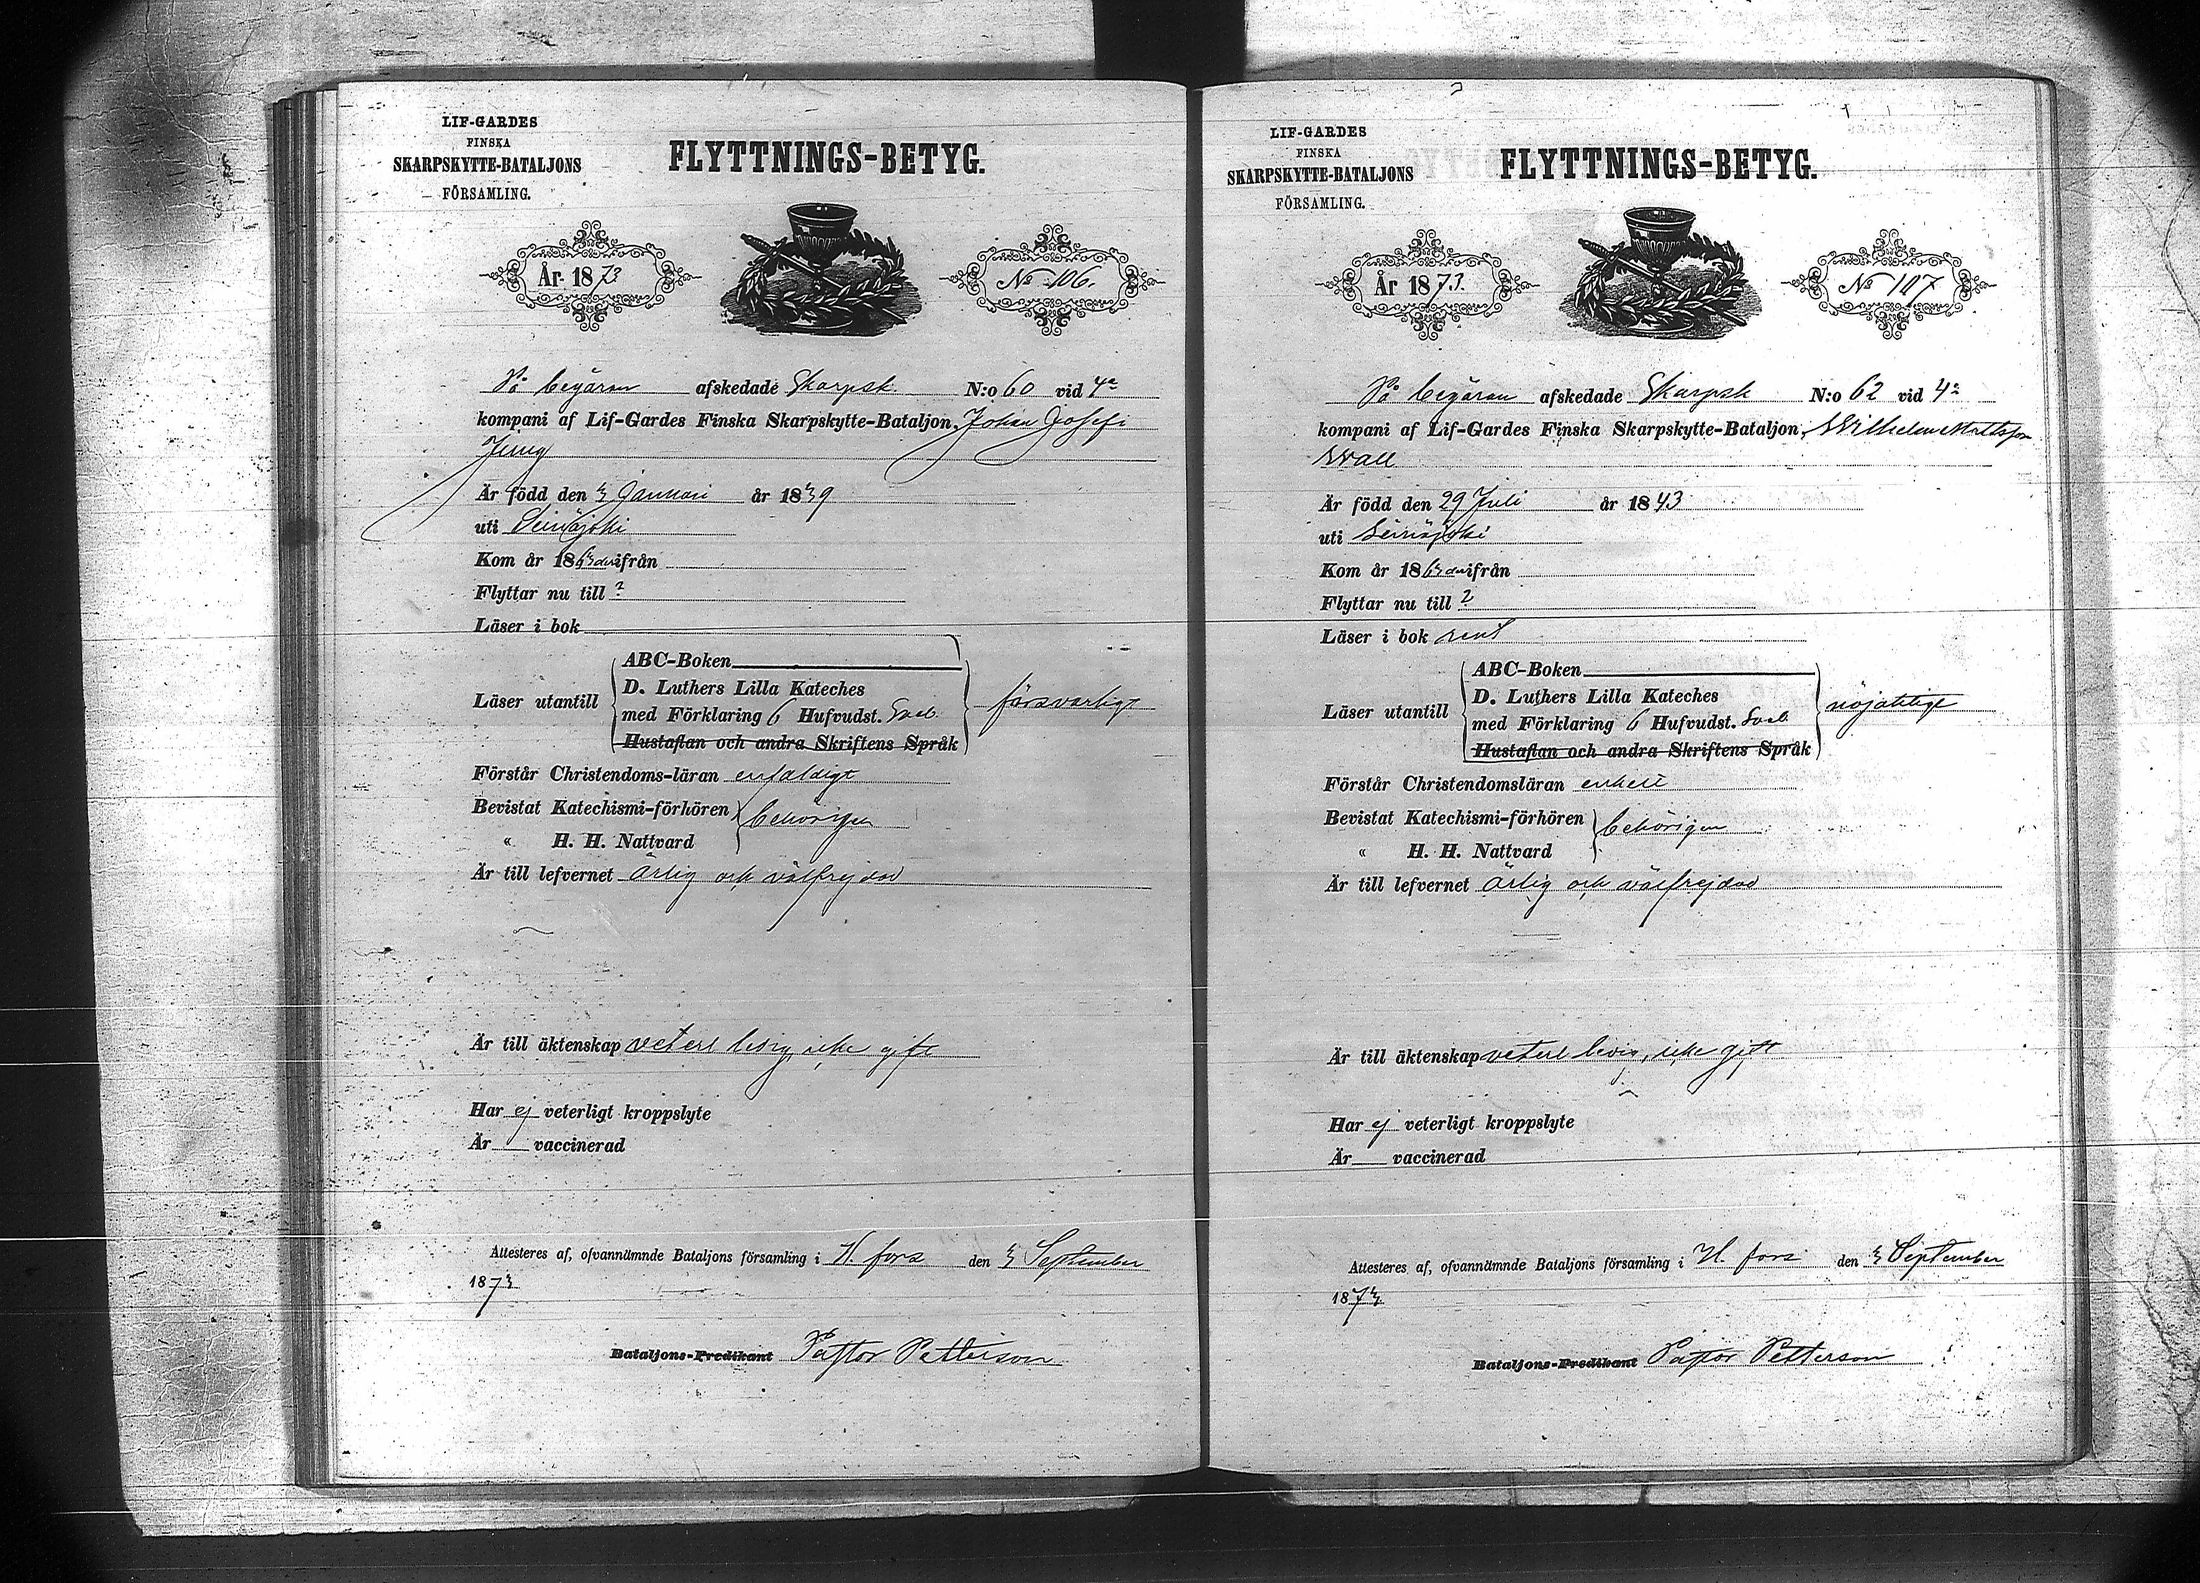 LIF-GARDES
FINSKA
SKARPSKYTTE-BATALJONS
FÖRSAMLING.
FLYTTNINGS-BETYG.
År 1873
No 106.
På begäran afskedade Skarpsk. N:o 60 vid 4a
kompani af Lif-Gardes Finska Skarpskytte-Bataljon, Johan Josefs
Är född den 3 Januari år 1839
uti Seinäjoki
Kom år 186 ifrån
Flyttar nu till ?
Läser i bok
ABC-Boken
Läser utantill
D. Luthers Lilla Kateches
med Förklaring 6 Hufvudst. Sveb. försvarligt
Hustaflan och andra Skriftens Språk
Förstår Christendoms-läran enfaldigt
Bevistat Katechismi-förhören
behörigen
« H. H. Nattvard
Är till lefvernet ärlig och välfrejdad
Är till äktenskap veterl ledig, icke gift
Har ej veterligt kroppslyte
Är vaccinerad
Attesteres af, ofvannämnde Bataljons församling i H. fors den 3 September
1873
Bataljons-Predikant Pastor Petterson
LIF-GARDES
FINSKA
SKARPSKYTTE-BATALJONS
FÖRSAMLING.
FLYTTNINGS-BETYG.
År 1873.
No 107
På begäran afskedade Skarpsk N:o 62 vid 4a
kompani af Lif-Gardes Finska Skarpskytte-Bataljon, Wilhelm Mattsson
Wall
Är född den 29 Juli år 1843
uti Seinäjoki
Kom år 186 ifrån
Flyttar nu till ?
Läser i bok rent
ABC-Boken
Läser utantill
D. Luthers Lilla Kateches
med Förklaring 6 Hufvudst. Sveb. nöjaktigt
Hustaflan och andra Skriftens Språk
Förstår Christendomsläran enkelt
Bevistat Katechismi-förhören
behörigen
« H. H. Nattvard
Är till lefvernet ärlig och välfrejdad
Är till äktenskap veterl ledig, icke gift
Har ej veterligt kroppslyte
Är vaccinerad
Attesteres af, ofvannämnde Bataljons församling i H. fors den 3 September
1873
Bataljons-Predikant Pastor Petterson